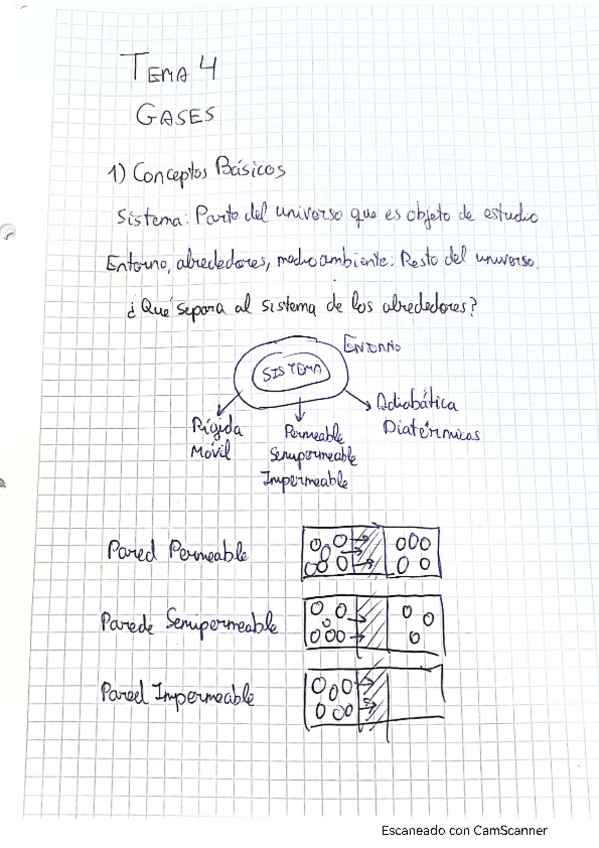 TEMA 4
GASES
1) Conceptos Básicos
Sistema: Parte del universo que es objeto de estudio
Entorno, alrededores, medio ambiente: Resto del universo.
¿Qué separa al sistema de los alrededores?
ENTORNO
SISTEMA
Rígida
Móvil
Permeable
Semipermeable
Impermeable
Adiabática
Diatérmicas
Pared Permeable
Parede Semipermeable
Pared Impermeable
Escaneado con CamScanner